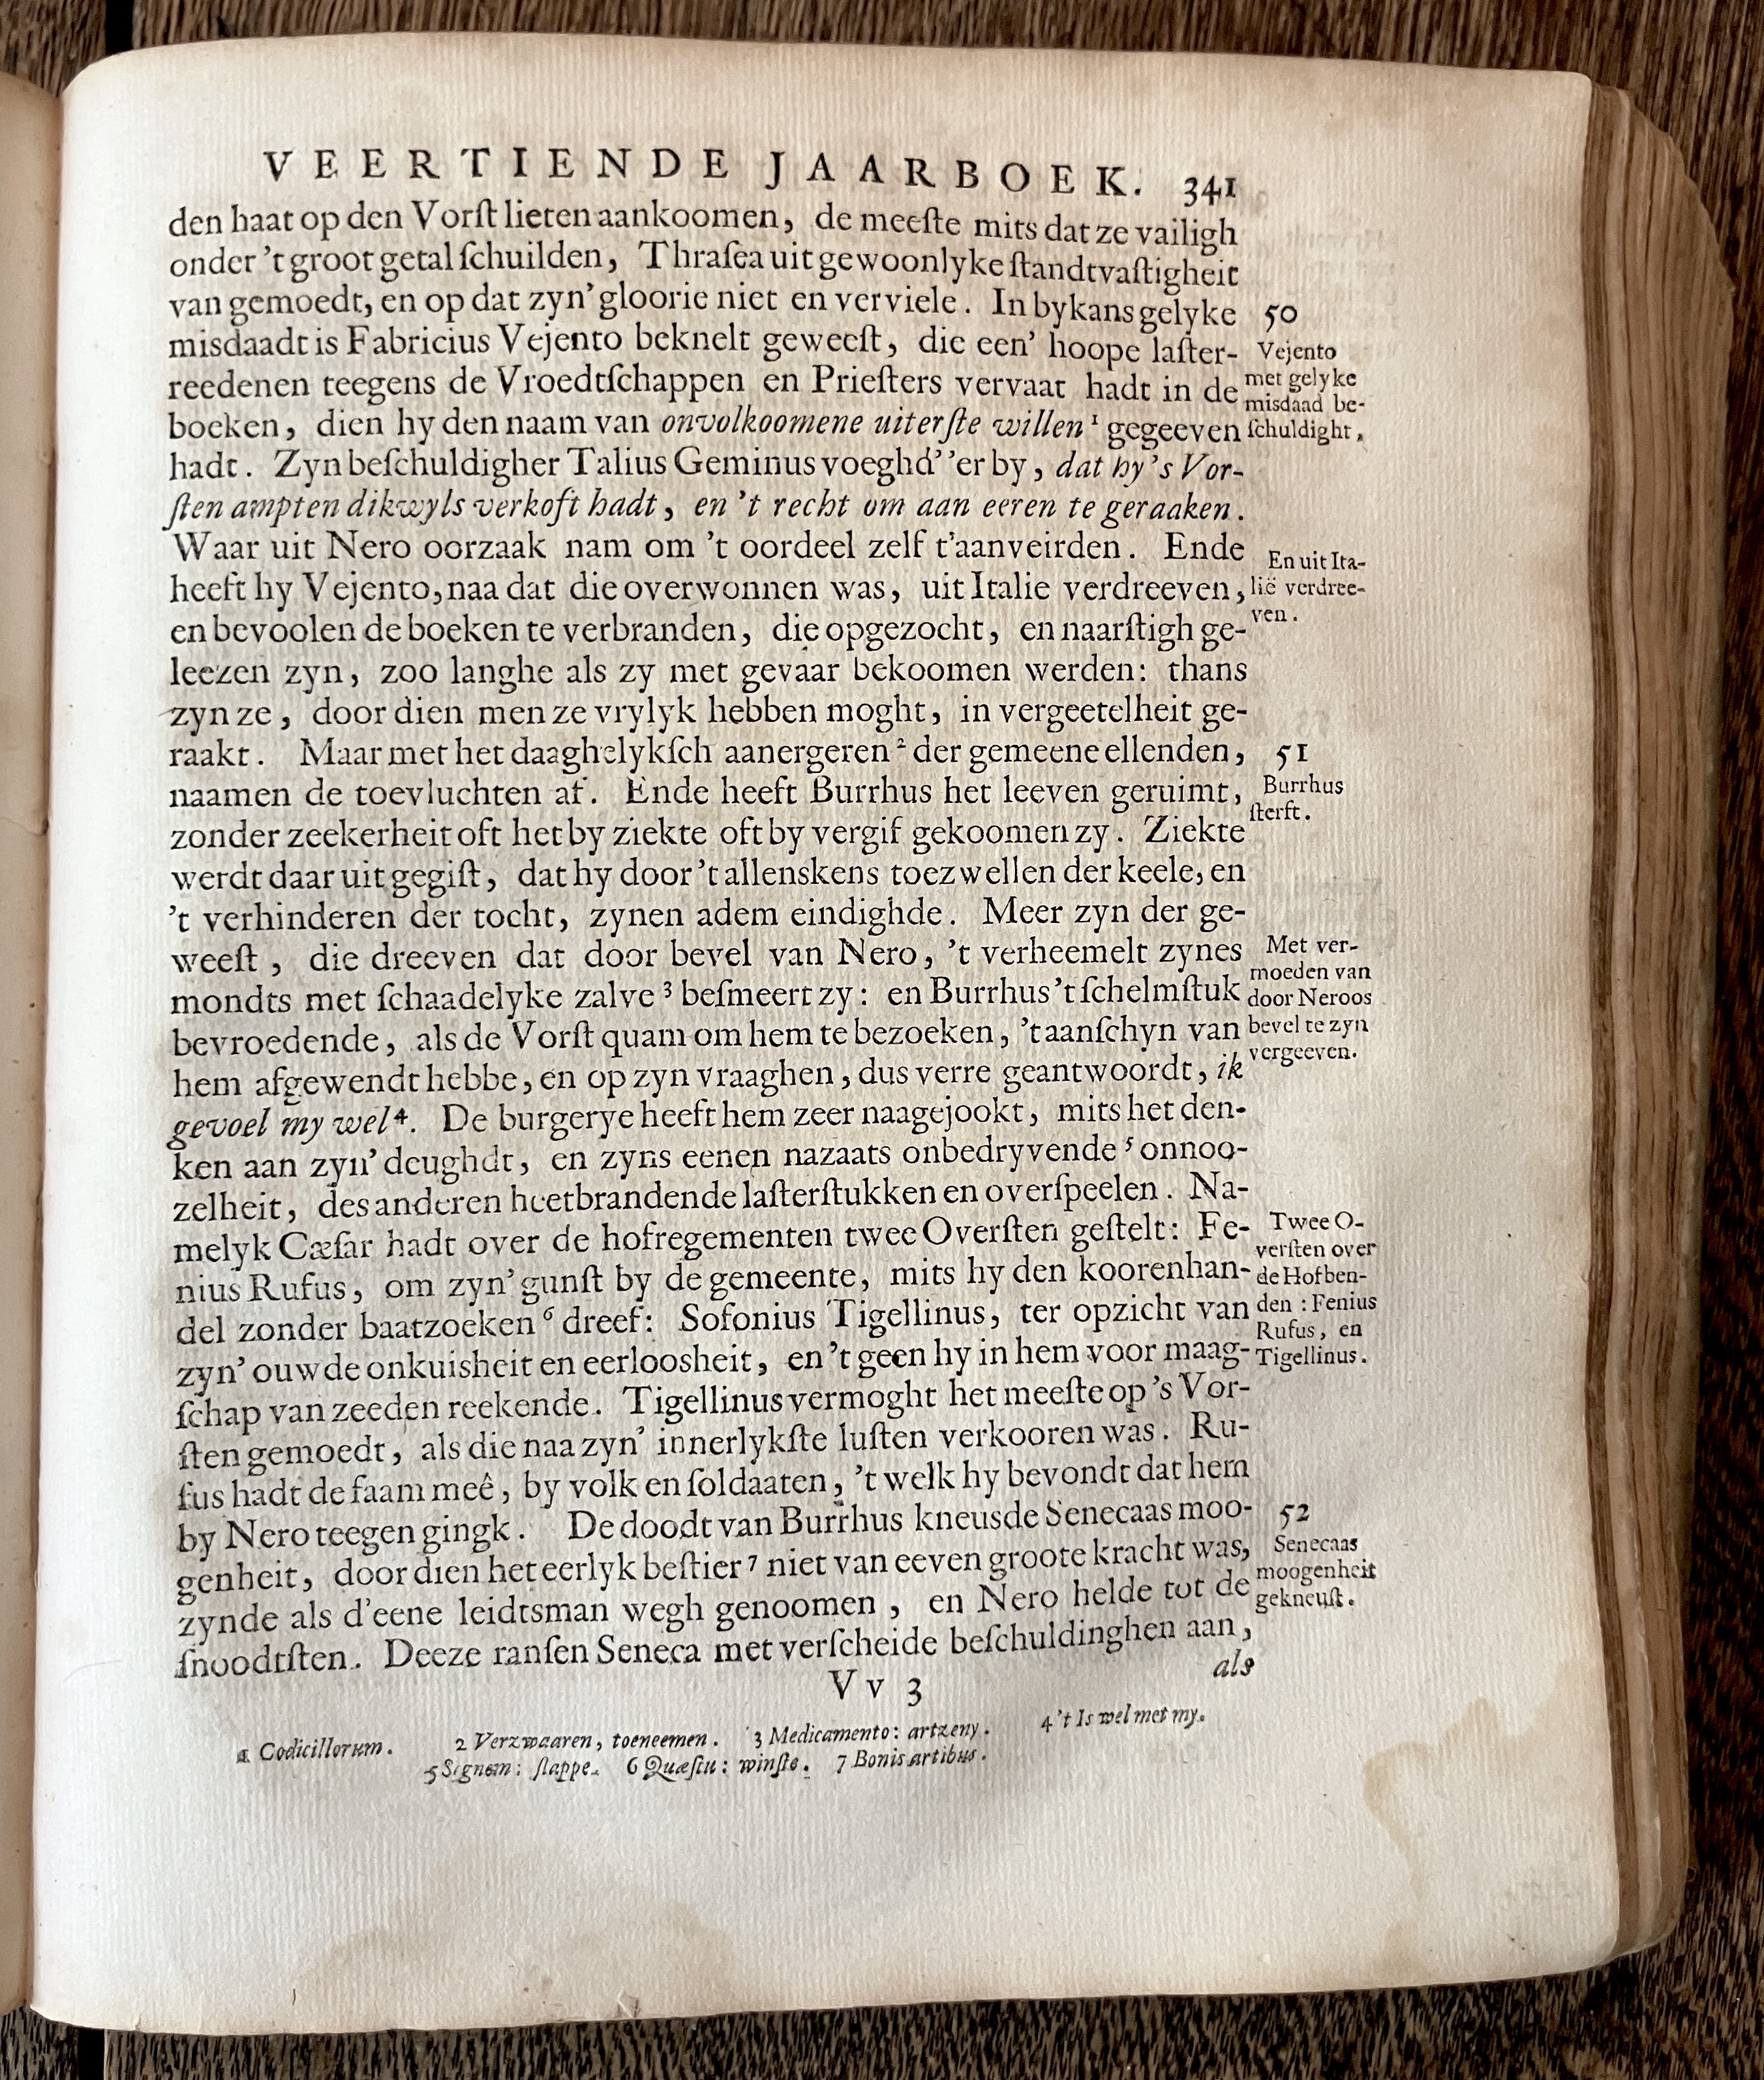 VEERTIENDE JAARBOEK. 341
den haat op den Vorſt lieten aankoomen, de meeſte mits dat ze vailigh
onder 't groot getal ſchuilden, Thraſea uit gewoonlyke ſtandtvaſtigheit
van gemoedt, en op dat zyn' gloorie niet en verviele. In bykans gelyke
misdaadt is Fabricius Vejento beknelt geweeſt, die een' hoope laſter-
reedenen teegens de Vroedtſchappen en Prieſters vervaat hadt in de
boeken, dien hy den naam van onvolkoomene uiterſte willen ¹ gegeeven
hadt. Zyn beſchuldigher Talius Geminus voeghd' 'er by, dat hy 's Vor-
ſten ampten dikwyls verkoft hadt, en 't recht om aan eeren te geraaken.
Waar uit Nero oorzaak nam om 't oordeel zelf t'aanveirden. Ende
heeft hy Vejento, naa dat die overwonnen was, uit Italie verdreeven,
en bevoolen de boeken te verbranden, die opgezocht, en naarſtigh ge-
leezen zyn, zoo langhe als zy met gevaar bekoomen werden: thans
zyn ze, door dien men ze vrylyk hebben moght, in vergeetelheit ge-
raakt. Maar met het daaghelykſch aanergeren ² der gemeene ellenden,
naamen de toevluchten af. Ende heeft Burrhus het leeven geruimt,
zonder zeekerheit oft het by ziekte oft by vergif gekoomen zy. Ziekte
werdt daar uit gegiſt, dat hy door 't allenskens toezwellen der keele, en
't verhinderen der tocht, zynen adem eindighde. Meer zyn der ge-
weeſt, die dreeven dat door bevel van Nero, 't verheemelt zynes
mondts met ſchaadelyke zalve ³ beſmeert zy: en Burrhus 't ſchelmſtuk
bevroedende, als de Vorſt quam om hem te bezoeken, 't aanſchyn van
hem afgewendt hebbe, en op zyn vraaghen, dus verre geantwoordt, ik
gevoel my wel ⁴. De burgerye heeft hem zeer naagejookt, mits het den-
ken aan zyn' deughdt, en zyns eenen nazaats onbedryvende ⁵ onnoo-
zelheit, des anderen heetbrandende laſterſtukken en overſpeelen. Na-
melyk Cæſar hadt over de hofregementen twee Overſten geſtelt: Fe-
nius Rufus, om zyn' gunſt by de gemeente, mits hy den koorenhan-
del zonder baatzoeken ⁶ dreef: Sofonius Tigellinus, ter opzicht van
zyn' ouwde onkuisheit en eerloosheit, en 't geen hy in hem voor maag-
ſchap van zeeden reekende. Tigellinus vermoght het meeſte op 's Vor-
ſten gemoedt, als die naa zyn' innerlykſte luſten verkooren was. Ru-
fus hadt de faam meê, by volk en ſoldaaten, 't welk hy bevondt dat hem
by Nero teegen gingk. De doodt van Burrhus kneusde Senecaas moo-
genheit, door dien het eerlyk beſtier ⁷ niet van eeven groote kracht was,
zynde als d'eene leidtsman wegh genoomen, en Nero helde tot de
ſnoodtſten. Deeze ranſen Seneca met verſcheide beſchuldinghen aan,
als
Vv 3
50
Vejento
met gelyke
misdaad be-
ſchuldight,
En uit Ita-
lië verdree-
ven.
51
Burrhus
ſterft.
Met ver-
moeden van
door Neroos
bevel te zyn
vergeeven.
Twee O-
verſten over
de Hofben-
den: Fenius
Rufus, en
Tigellinus.
52
Senecaas
moogenheit
gekneuſt.
1 Codicillorum. 2 Verzwaaren, toeneemen. 3 Medicamento: artzeny. 4 't Is wel met my.
5 Segnem: ſlappe. 6 Quæſtu: winſte. 7 Bonis artibus.